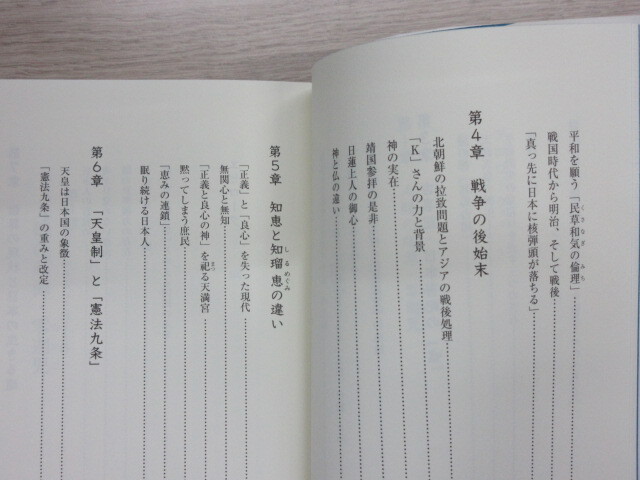 平和を願う「民草和気の倫理」
戦国時代から明治、そして戦後
「真っ先に日本に核弾頭が落ちる」
第4章　戦争の後始末
北朝鮮の拉致問題とアジアの戦後処理
「K」さんの力と背景
神の実在
靖国参拝の是非
日蓮上人の御心
神と仏の違い
第5章　知恵と知瑠恵の違い
「正義」と「良心」を失った現代
無関心と無知
「正義と良心の神」を祀る天満宮
黙ってしまう庶民
「恵みの連鎖」
眠り続ける日本人
第6章　「天皇制」と「憲法九条」
天皇は日本国の象徴
「憲法九条」の重みと改定